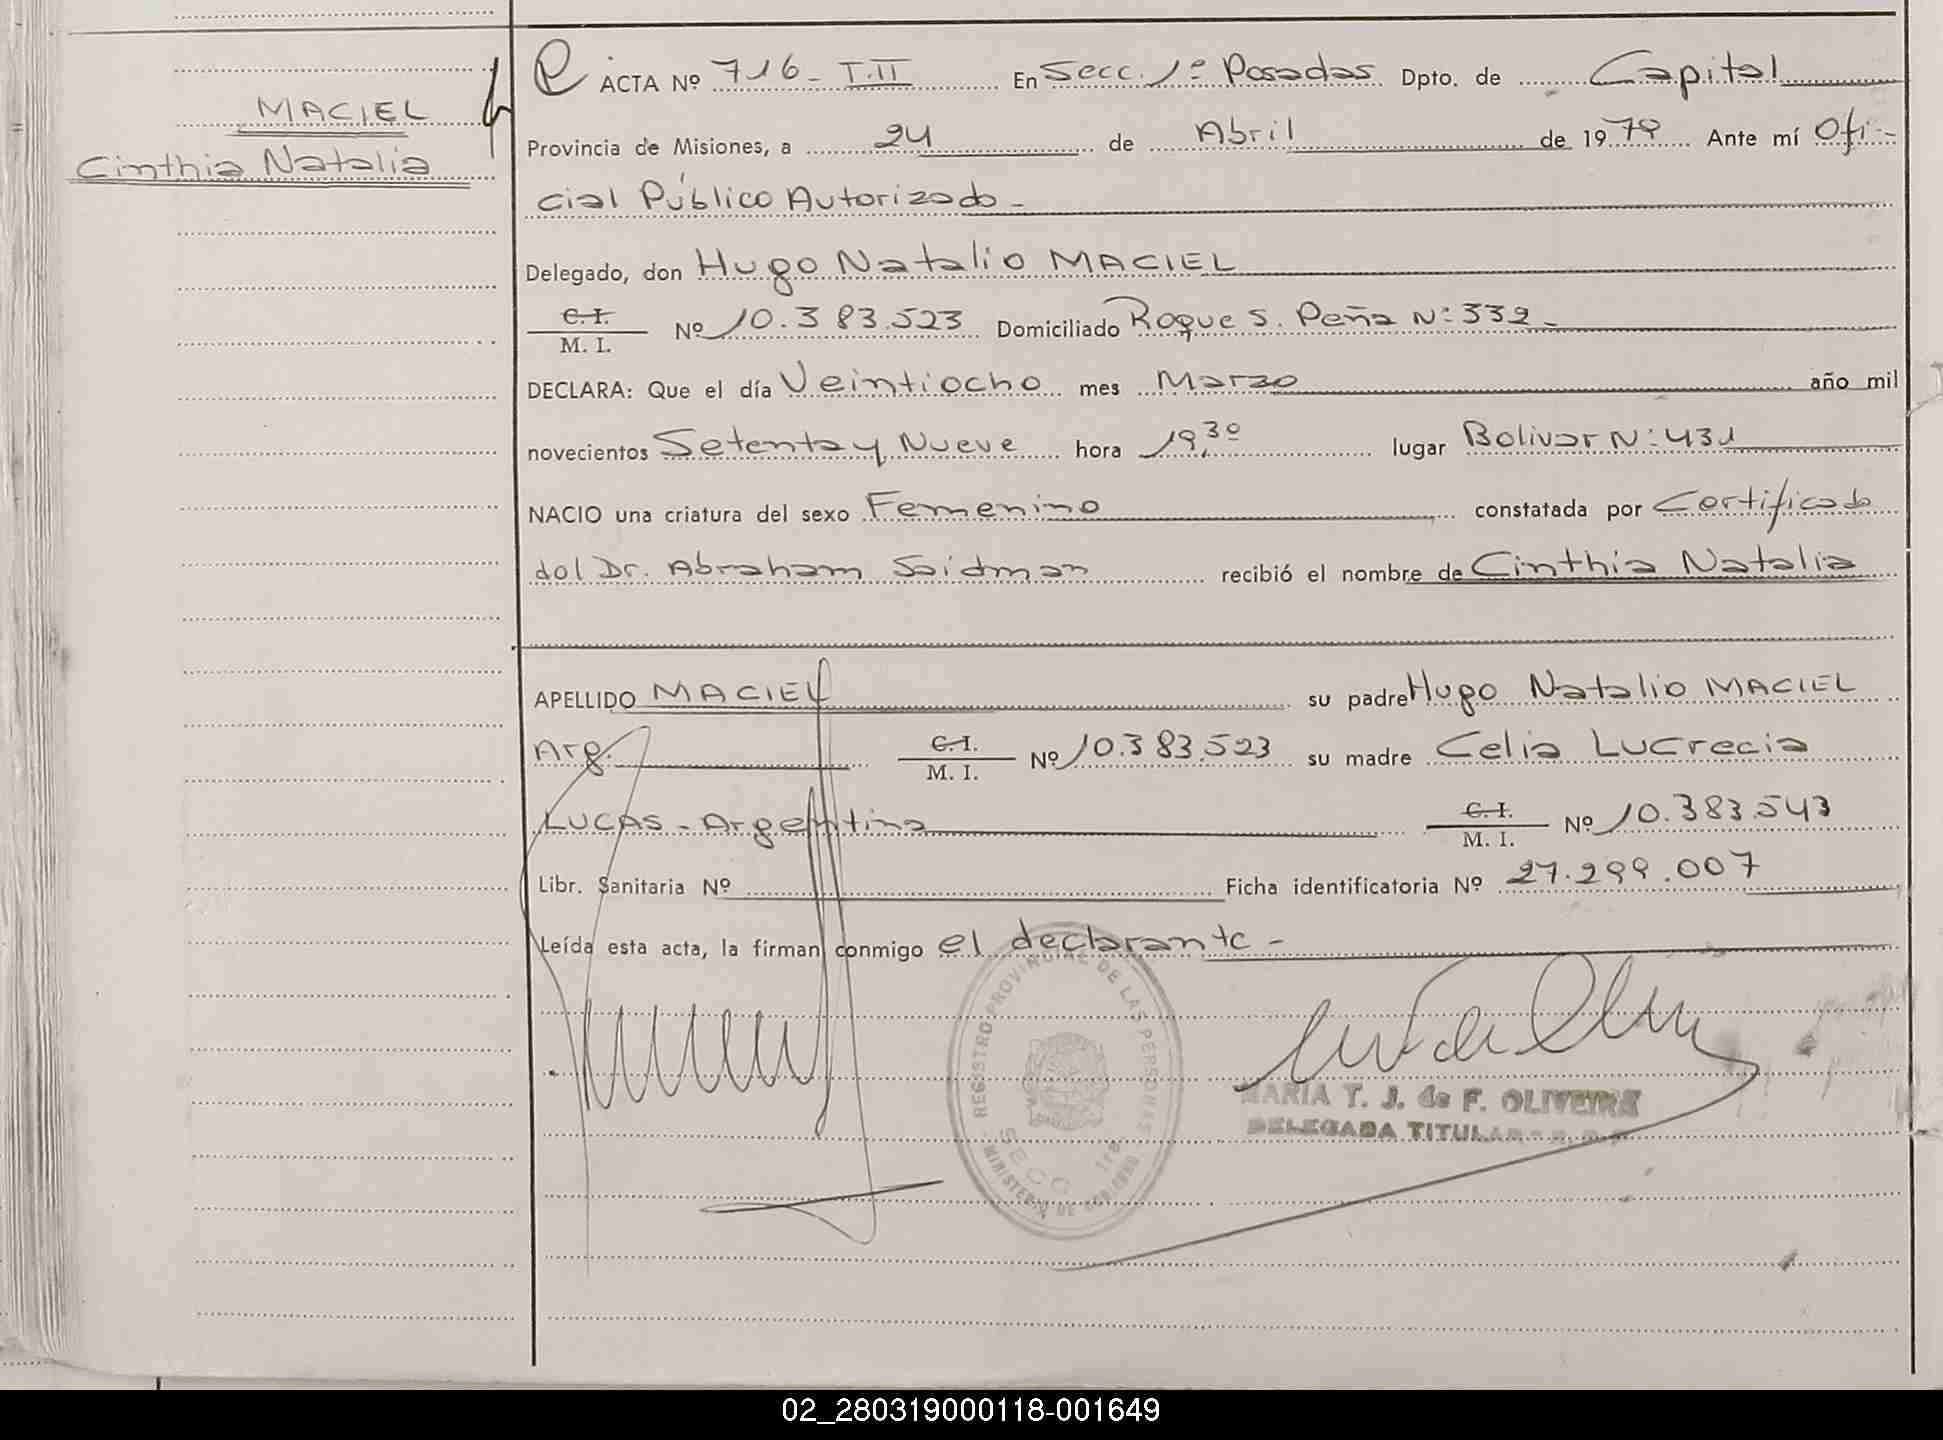 MACIEL
Cinthia Natalia
ACTA Nº 716 - T.II En Secc. 1º Posadas Dpto. de Capital
Provincia de Misiones, a 24 de Abril de 1979 Ante mí Ofi-
cial Público Autorizado -
Delegado, don Hugo Natalio MACIEL
C.I. M. I. Nº 10.383.523 Domiciliado Roque S. Peña Nº 332 -
DECLARA: Que el día Veintiocho mes Marzo año mil
novecientos Setenta y Nueve hora 19,30 lugar Bolivar Nº 431
NACIO una criatura del sexo Femenino constatada por Certificado
del Dr. Abraham Saidman recibió el nombre de Cinthia Natalia
APELLIDO MACIEL su padre Hugo Natalio MACIEL
Arg. C.I. M. I. Nº 10.383.523 su madre Celia Lucrecia
LUCAS - Argentina C.I. M. I. Nº 10.383.543
Libr. Sanitaria Nº Ficha identificatoria Nº 27.299.007
Leída esta acta, la firman conmigo el declarante -
REGISTRO PROVINCIAL DE LAS PERSONAS
SECC. 1ra
MINISTERIO DE GOBIERNO
MARIA T. J. de F. OLIVEIRA
DELEGADA TITULAR
02_280319000118-001649